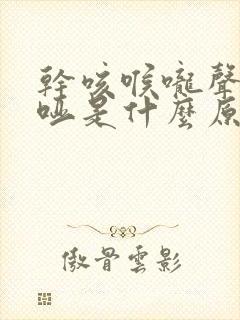 幹咳喉嚨聲
啞是什麼原
傲骨雲影